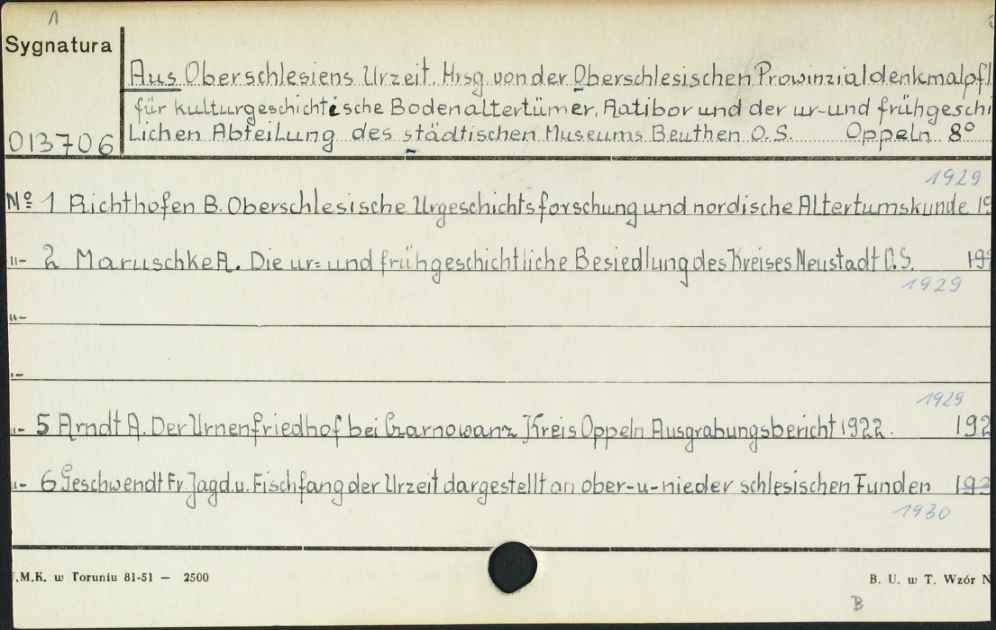 1
Sygnatura
Aus Oberschlesiens Urzeit. Hrsg. von der Oberschlesischen Prowinzialdenkmalpfl
für kulturgeschichtische Bodenaltertümer, Ratibor und der ur-und frühgeschi
013706 Lichen Abteilung des städtischen Museums Beuthen O.S. Oppeln 8°
1929
№ 1 Richthofen B. Oberschlesische Urgeschichtsforschung und nordische Altertumskunde 19
"- 2 Maruschke A. Die ur= und frühgeschichtliche Besiedlung des Kreises Neustadt O.S. 192
1929
"-
"-
1929
"- 5 Arndt A. Der Urnenfriedhof bei Czarnowanz Kreis Oppeln Ausgrabungsbericht 1922. 192
"- 6 Geschwendt Fr. Jagd. u. Fischfang der Urzeit dargestellt an ober-u-nieder schlesischen Funden 193
1930
.M.K. w Toruniu 81-51 — 2500
B. U. w T. Wzór N
B